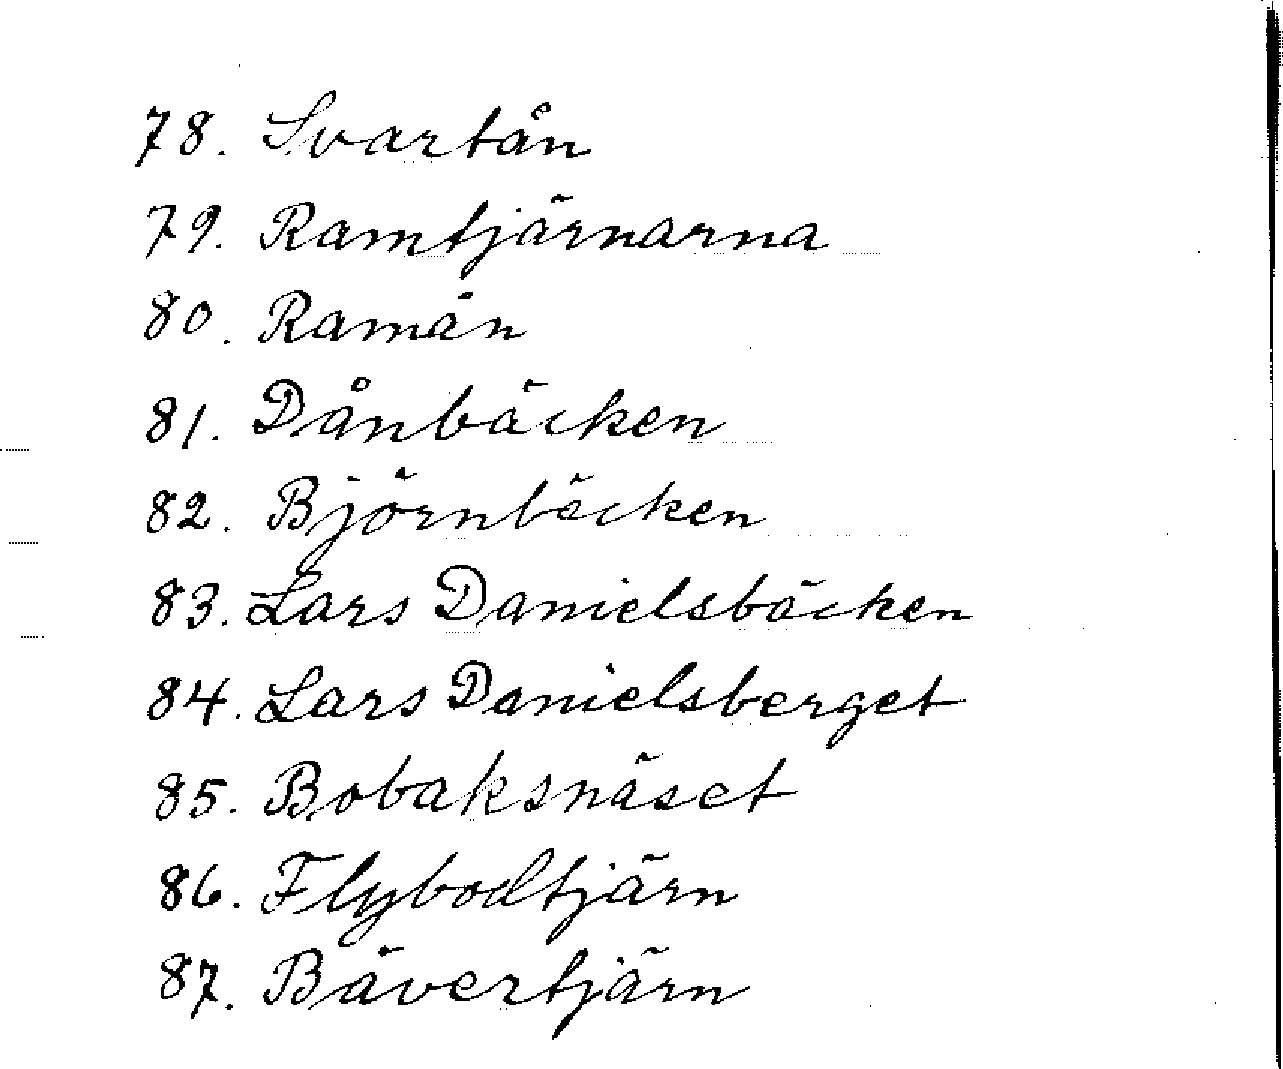 78. Svartån
79. Ramtjärnarna
80. Ramån
81. Dånbäcken
82. Björnbäcken
83. Lars Danielsbäcken
84. Lars Danielsberget
85. Bobaksnäset
86. Flybodtjärn
87. Bävertjärn